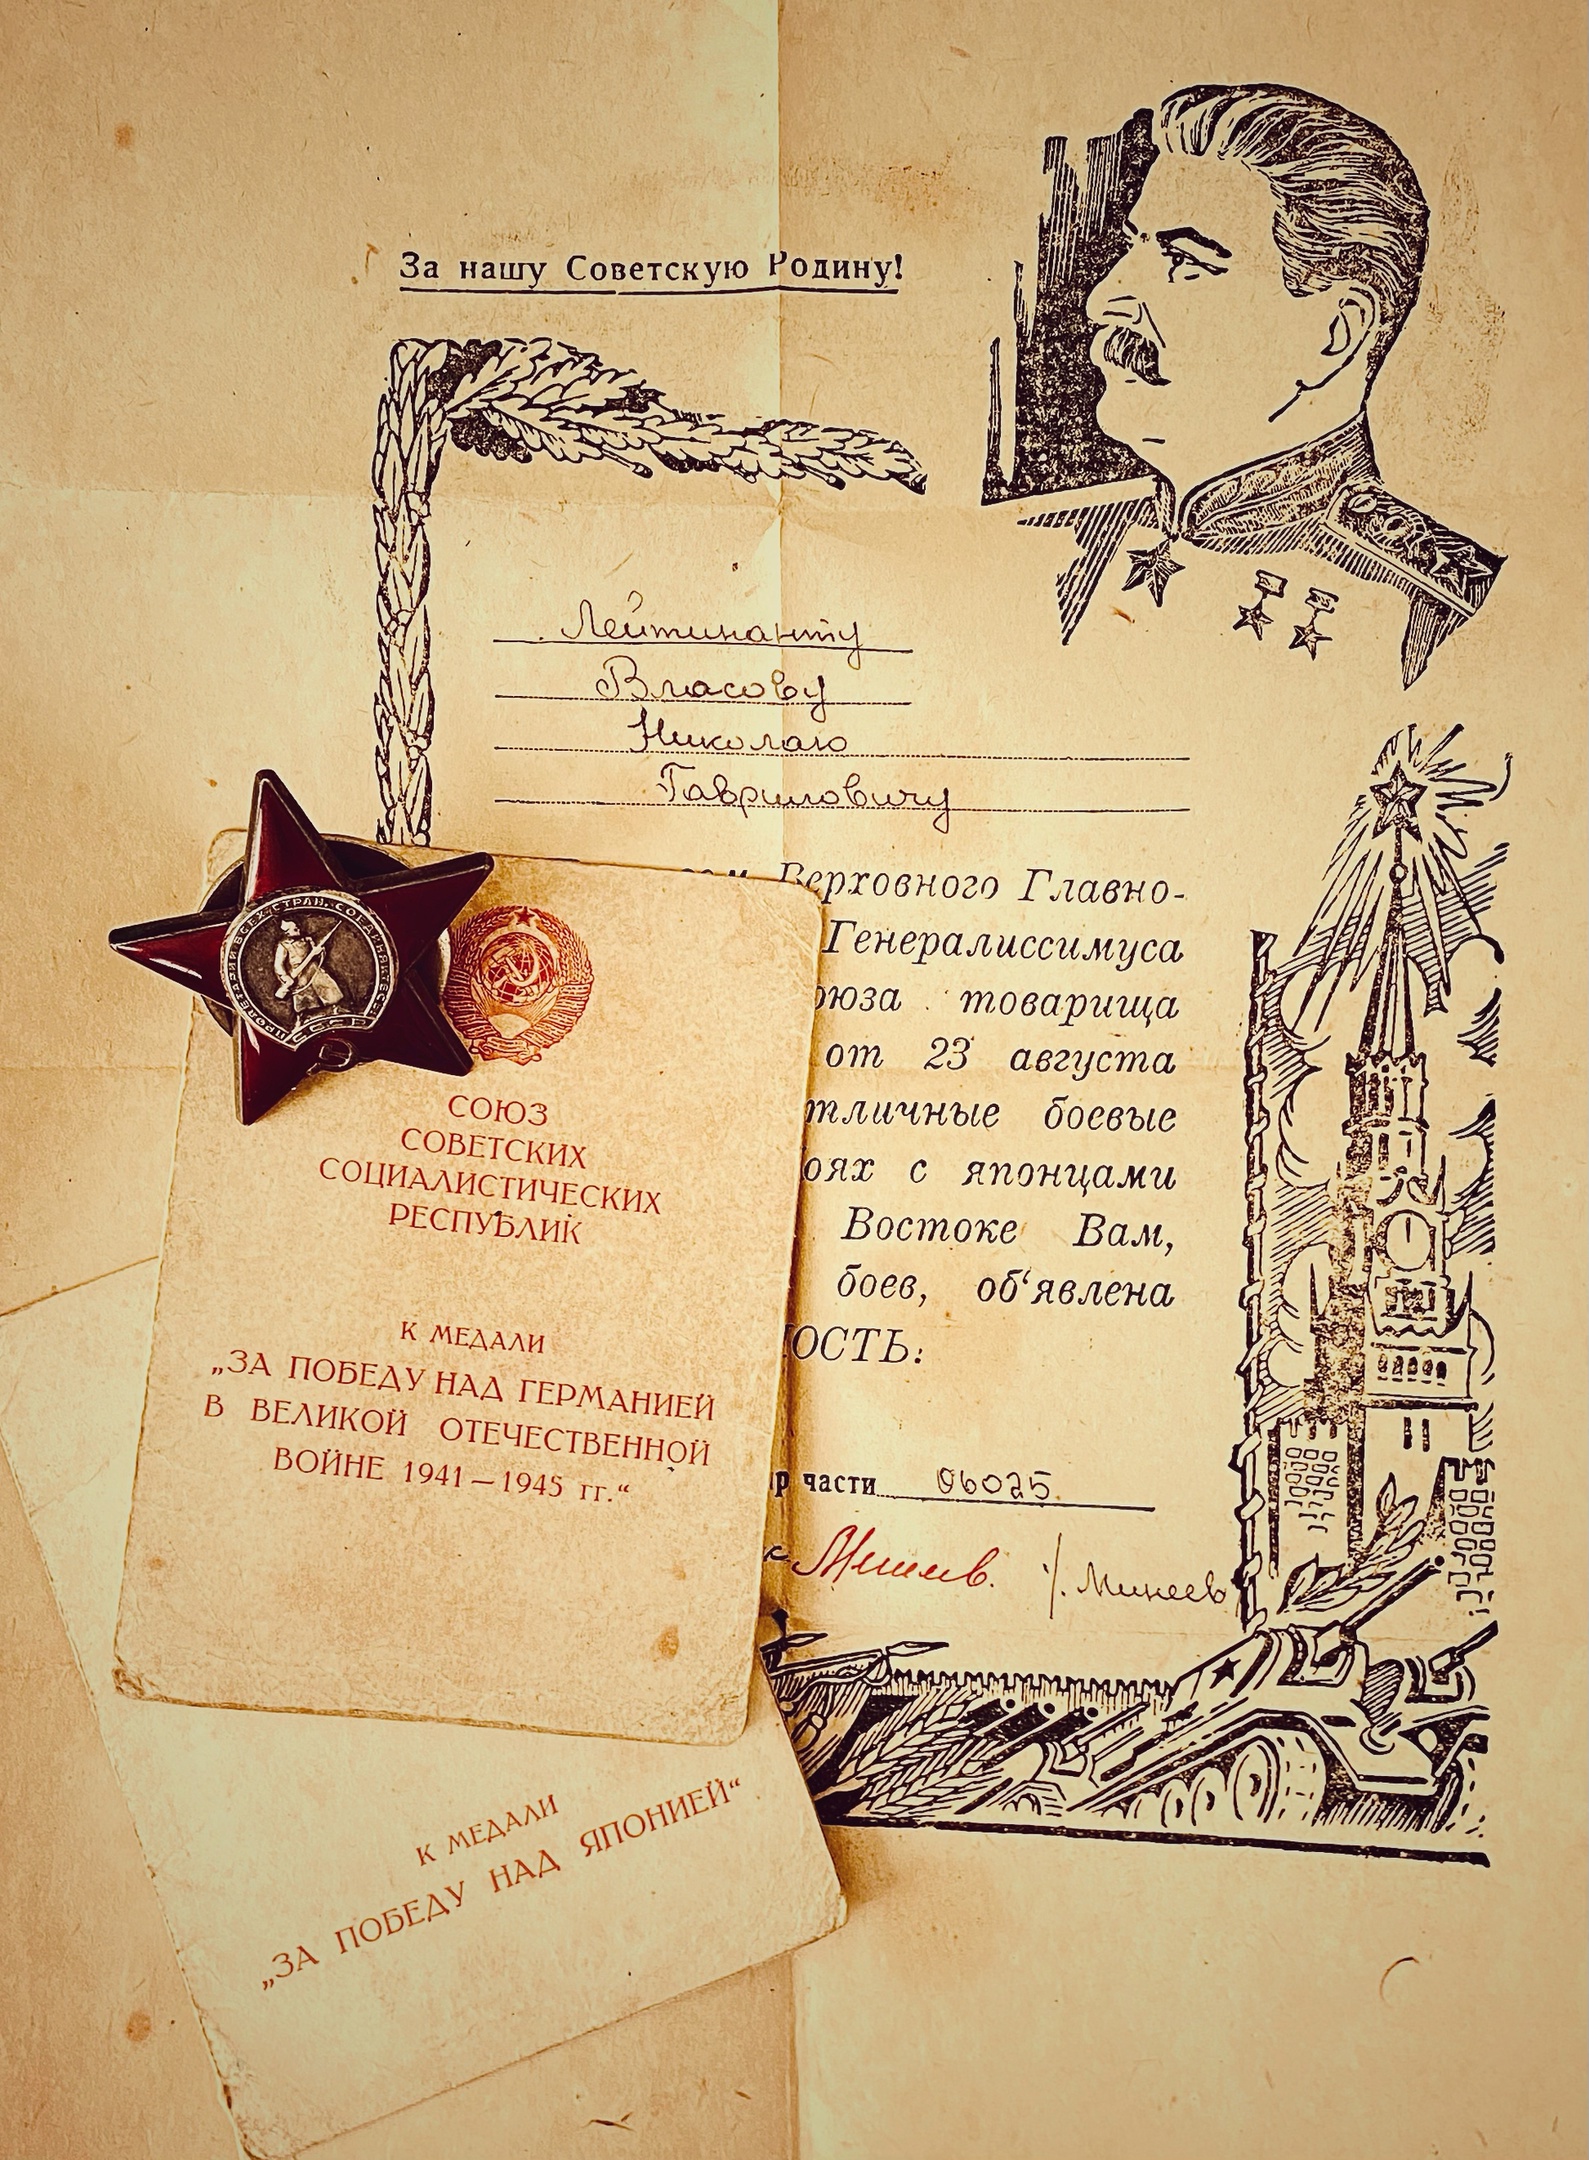 За нашу Советскую Родину!
Лейтинанту
Власову
Николаю
Гавриловичу
Верховного Главно-
Генералиссимуса
оюза товарища
от 23 августа
тличные боевые
оях с японцами
Востоке Вам,
боев, об‘явлена
ОСТЬ:
р части 06025
Минеев
ПРОЛЕТАРИИ ВСЕХ СТРАН, СОЕДИНЯЙТЕСЬ!
СССР
СОЮЗ
СОВЕТСКИХ
СОЦИАЛИСТИЧЕСКИХ
РЕСПУБЛИК
К МЕДАЛИ
„ЗА ПОБЕДУ НАД ГЕРМАНИЕЙ
В ВЕЛИКОЙ ОТЕЧЕСТВЕННОЙ
ВОЙНЕ 1941–1945 гг.“
К МЕДАЛИ
„ЗА ПОБЕДУ НАД ЯПОНИЕЙ“